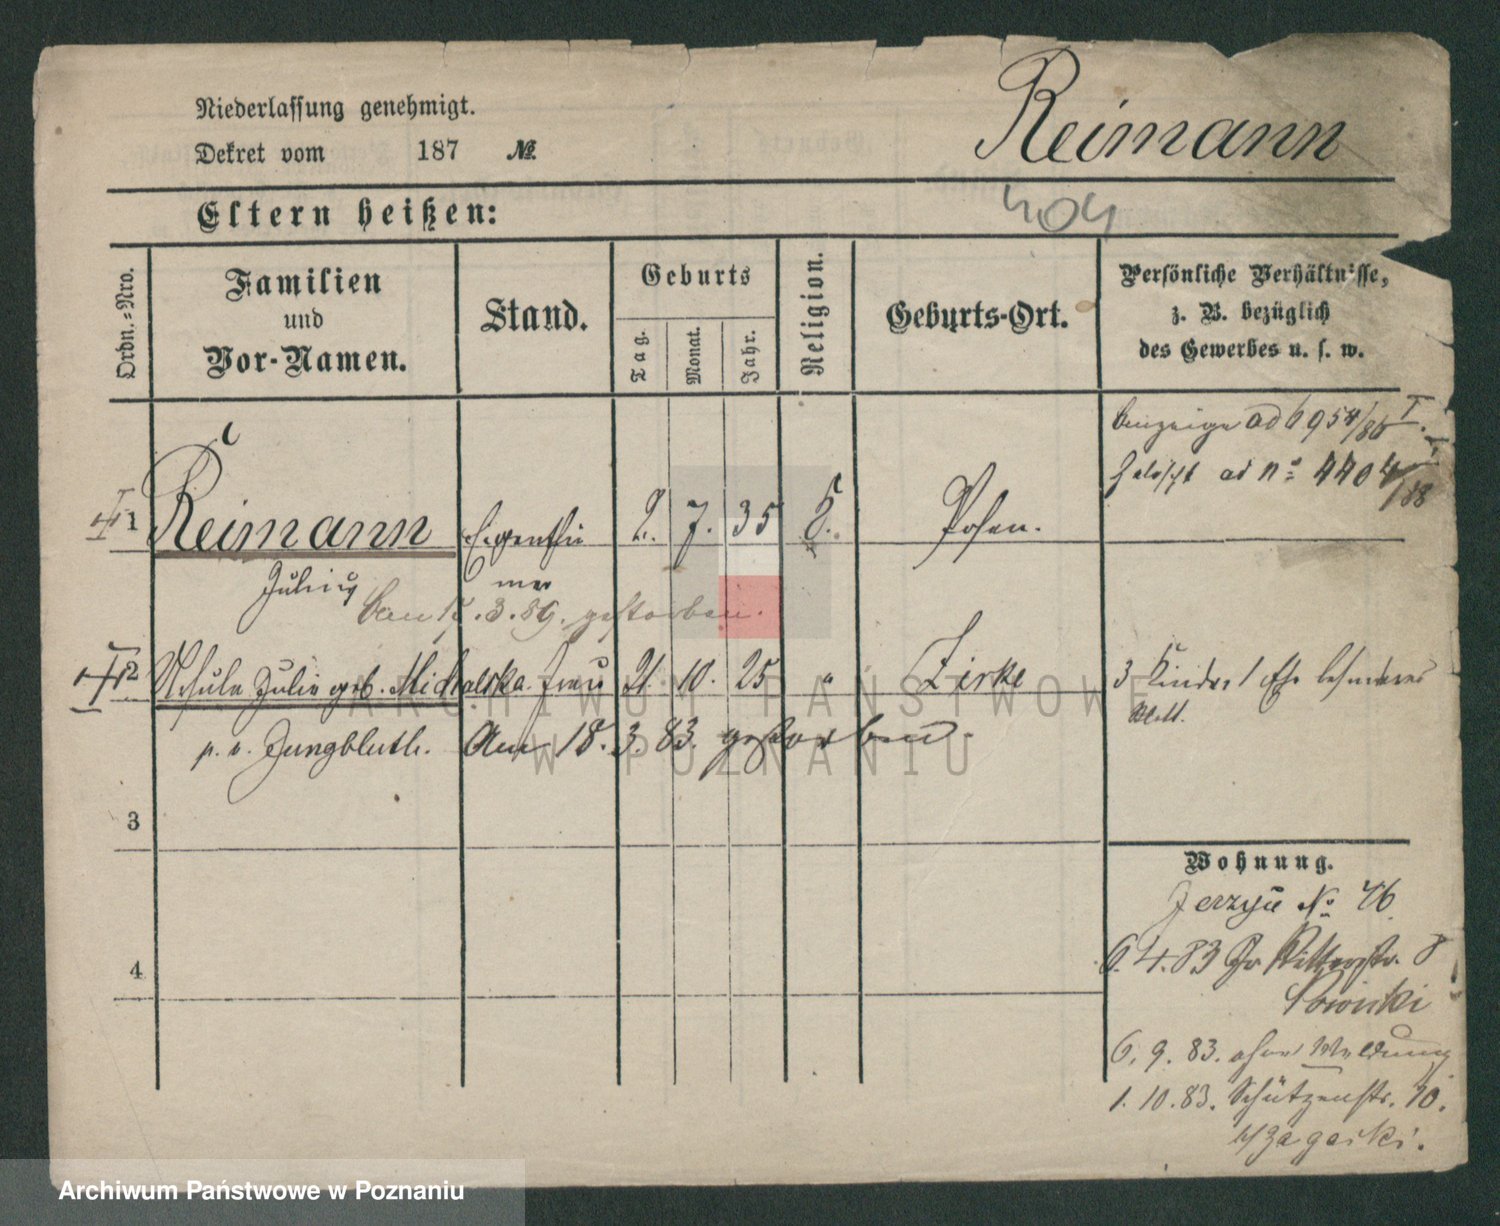 Niederlassung genehmigt.
Dekret vom 187 №
Reimann
Eltern heißen:
404
Ordn.-Nro.
Familien
und
Vor-Namen.
Stand.
Geburts
Tag.
Monat.
Jahr.
Religion.
Geburts-Ort.
Persönliche Verhältnisse,
z. B. bezüglich
des Gewerbes u. s. w.
ad 6954/86 I.
gelöscht ad No 4404/88
1 Reimann Eigenthü 2. 7. 35 Posen.
Julius mer
3.89. gestorben.
2 Julie geb. Michalska Frau 21. 10. 25 " Zirke 3 Kinder 1 Ehe besonderes
Blatt.
Jungbluth. Am 18. 3. 83. gestorben.
ARCHIWUM PAŃSTWOWE
W POZNANIU
3
Wohnung.
Jerzyce No 46
6. 4. 83 Gr Ritterstr. 8
4
6. 9. 83. ohne Meldung
1. 10. 83. Schützenstr. 10.
b/Zagaiski.
Archiwum Państwowe w Poznaniu